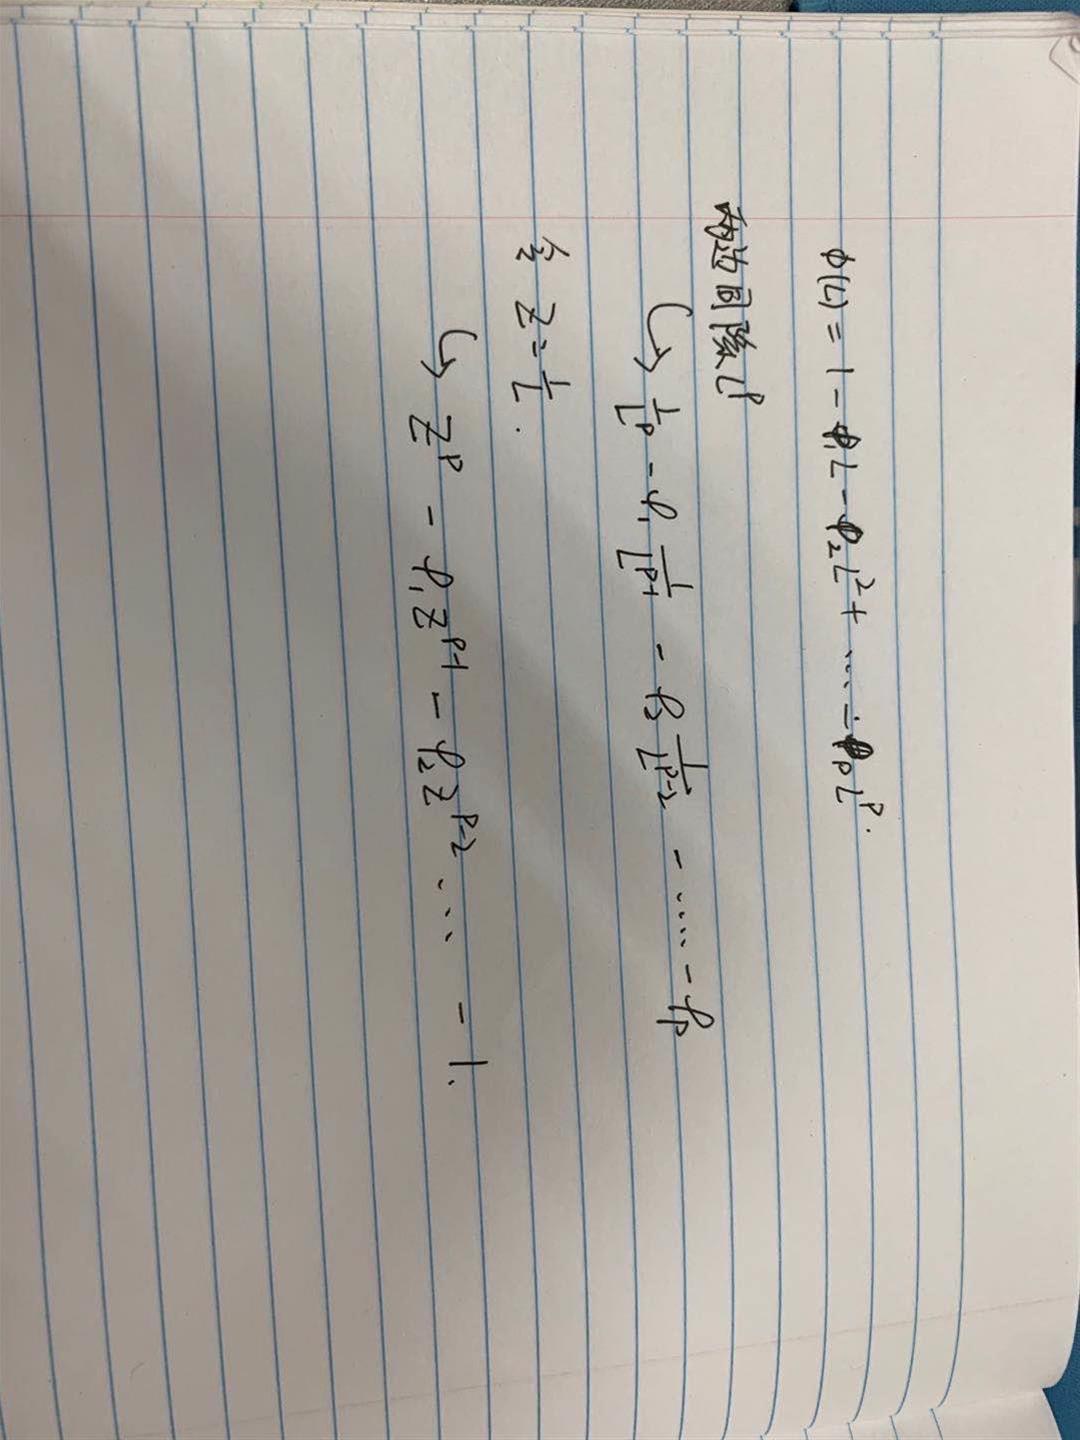 φ(L) = 1 - φ₁L - φ₂L² + ... - φₚLᵖ.
两边同除Lᵖ
↳ 1/Lᵖ - φ₁ 1/Lᵖ⁻¹ - φ₂ 1/Lᵖ⁻² - ..... - φₚ
令 Z = 1/L.
↳ Zᵖ - φ₁Zᵖ⁻¹ - φ₂Zᵖ⁻² ... - 1.